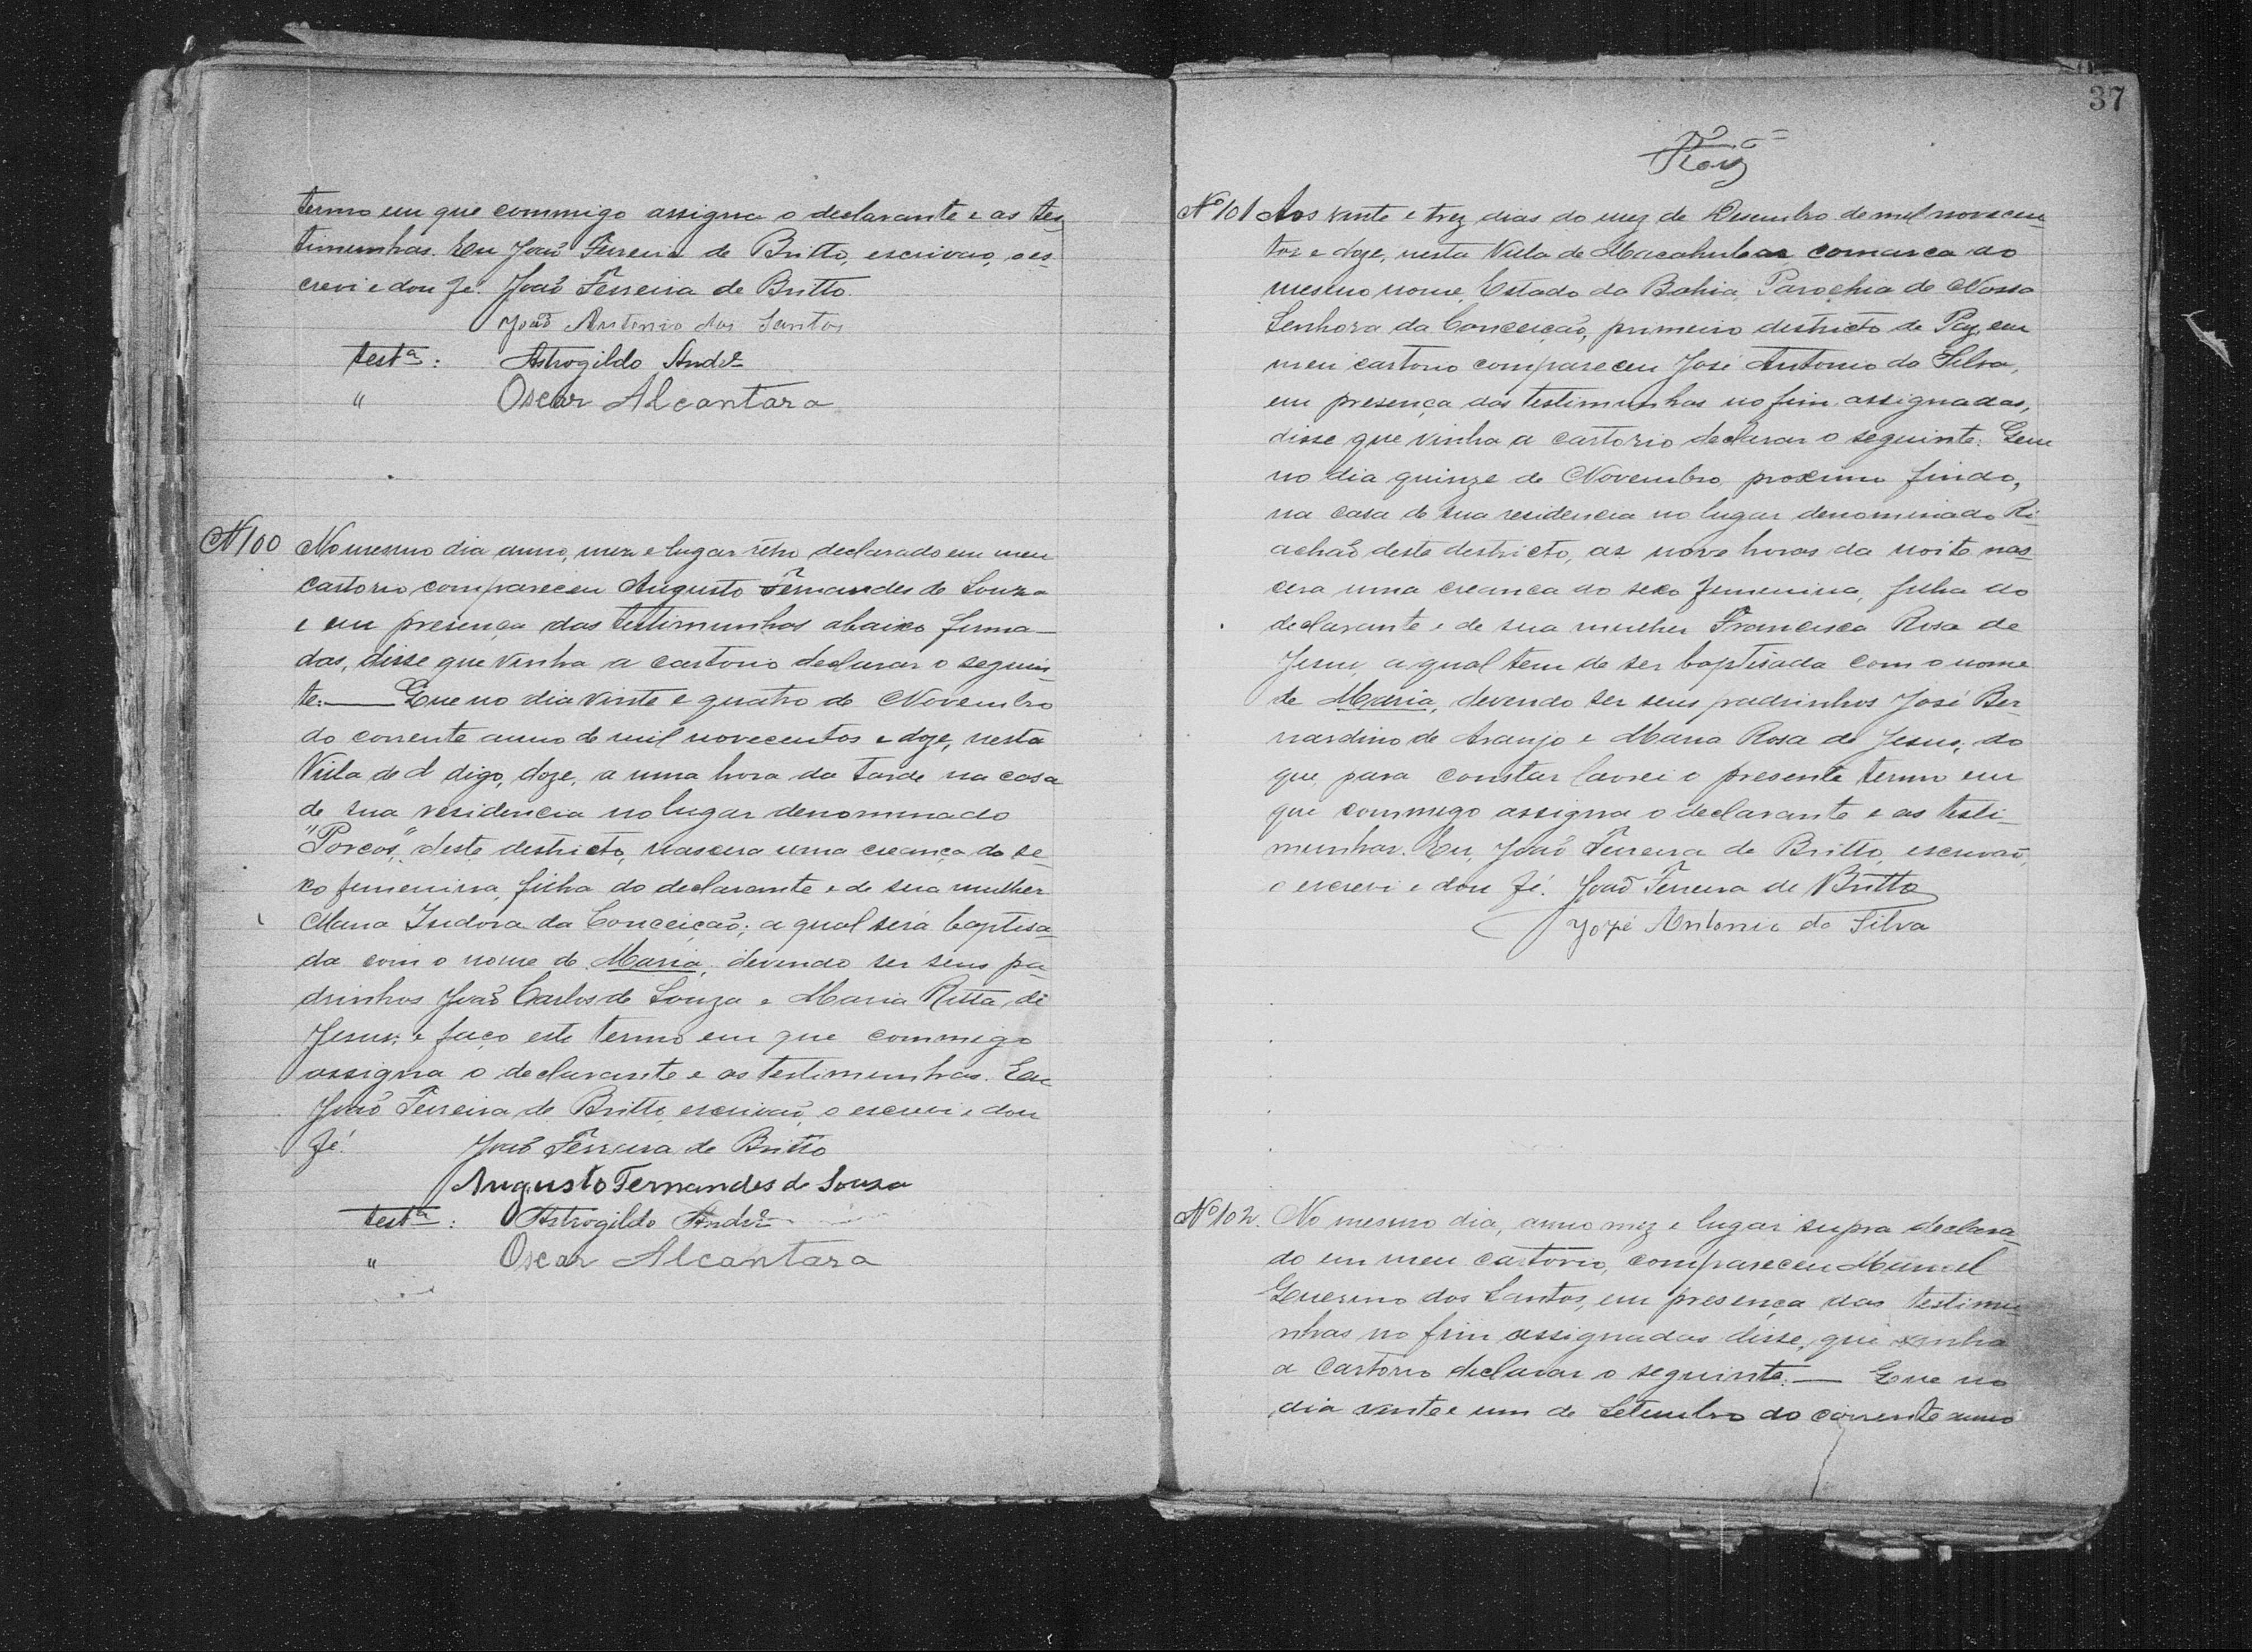 termo em que commigo assigna o declarante e as tes
timunhas. Eu João Ferreira de Britto, escrivão, o es-
crevi e dou fé. João Ferreira de Britto.
João Antonio dos Santos
testª: Astrogildo Andᵉ
" Oscar Alcantara
Nº 100 No mesmo dia anno, mez e lugar retro declarado em meu
cartorio compareceu Augusto Fernandes de Souza
e em presença das testimunhas abaixo firma-
das, disse que vinha a cartorio declarar o seguin-
te:— Que no dia vinte e quatro de Novembro
do corrente anno de mil novecentos e doze, nesta
Villa de d digo, doze, a uma hora da tarde na casa
de sua residencia no lugar denominado
"Porcos", deste destricto, nascera uma creança do se-
xo femenino, filha do declarante e de sua mulher
Maria Izidora da Conceição; a qual será baptisa-
da com o nome de Maria, devendo ser seus pa-
drinhos João Carlos de Souza e Maria Ritta de
Jesus; e faço este termo em que commigo
assigna o declarante e as testimunhas. Eu
João Ferreira de Britto, escrivão, o escrevi e dou
fé. João Ferreira de Britto
Augusto Fernandes de Souza
testª: Astrogildo Andᵉ
" Oscar Alcantara
37
Nº 101 Aos vinte e trez dias do mez de Desembro de mil novecen
tos e doze, nesta Villa de Macahubas comarca do
mesmo nome, Estado da Bahia, Parochia de Nossa
Senhora da Conceição, primeiro destricto de Paz, em
meu cartorio compareceu José Antonio da Silva,
em presença das testimunhas no fim assignadas,
disse que vinha a cartorio declarar o seguinte: Que
no dia quinze de Novembro, proximo findo,
na casa de sua residencia no lugar denominado Ri
achão deste destricto, as nove horas da noite nas-
cera uma creança do sexo femenino, filha do
declarante e de sua mulher Francisca Rosa de
Jesus, a qual tem de ser baptisada com o nome
de Maria, devendo ser seus padrinhos José Ber-
nardino de Araujo e Maria Rosa de Jesus; do
que, para constar lavrei o presente termo em
que commigo assigna o declarante e as testi-
munhas. Eu, João Ferreira de Britto, escrivão,
o escrevi e dou fé. João Ferreira de Britto
José Antonio da Silva
Nº 102. No mesmo dia, anno mez e lugar supra declara-
do em meu cartorio, compareceu Manoel
Guerino dos Santos, em presença das testimu
nhas no fim assignadas disse, que vinha
a cartorio declarar o seguinte:— Que no
dia vinte e um de Setembro do corrente anno